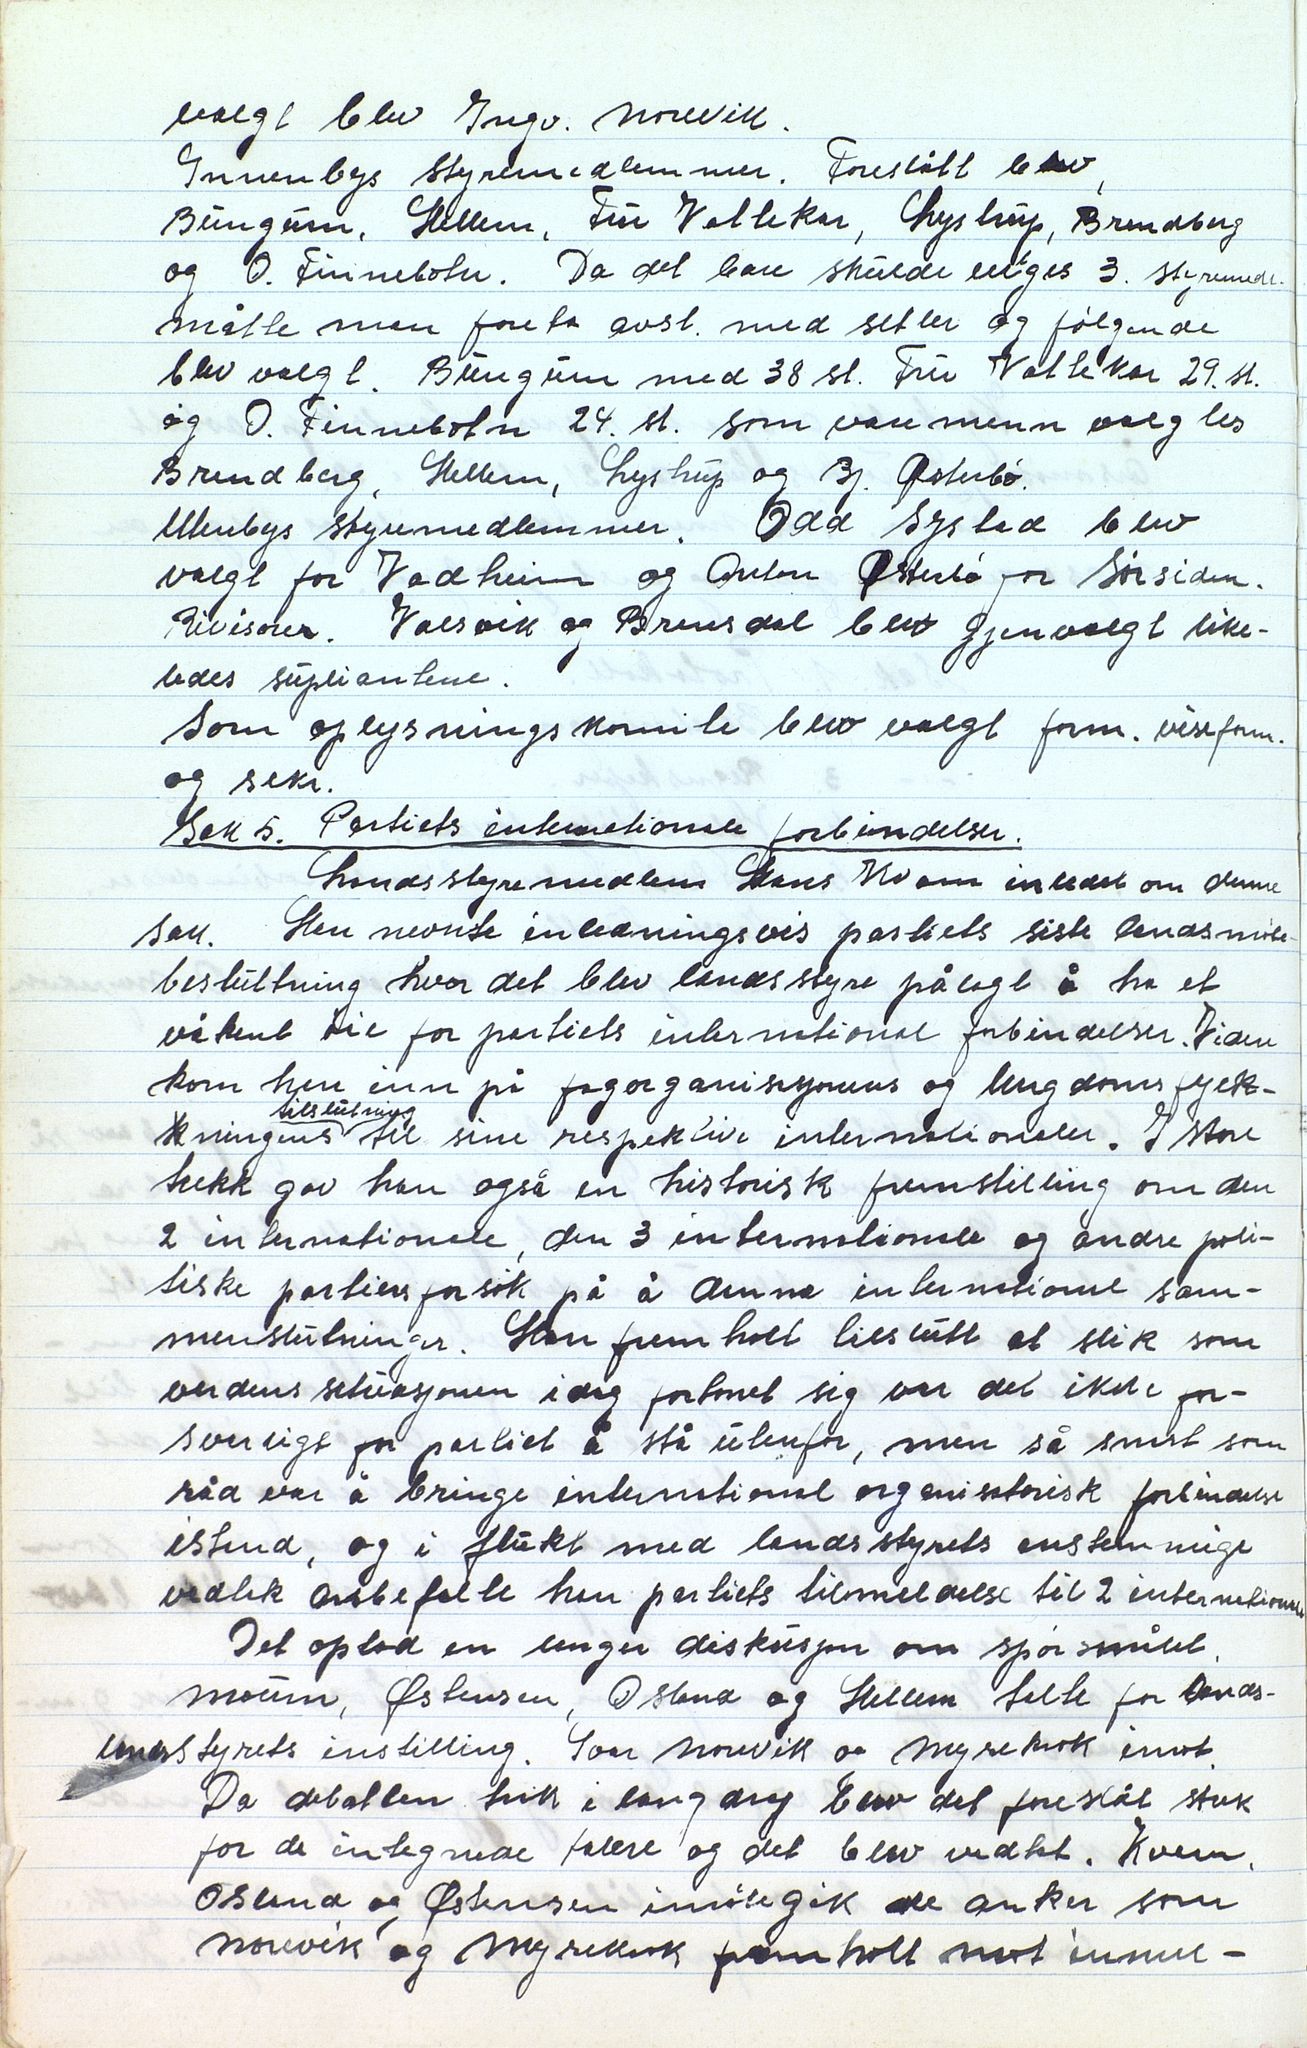 valgt blev Ingv. Norevik.
Innenbys styremedlemmer. Foreslått blev,
Bungum, Hellem, Fru Vattekar, Lystrup, Brendberg
og O. Finnebotn. Da det bare skulde velges 3. styremedl.
måtte man foreta avst. med setler og følgende
blev valgt. Bungum med 38 st. Fru Vattekar 29. st.
og O. Finnebotn 24. st. som varemenn valgtes
Brendberg, Hellem, Lystrup og Bj. Østerbø.
Utenbys styremedlemmer. Odd Systad blev
valgt for Vadheim og Anton Østerbø for Sørsiden.
Revisorer. Valsvik og Brensdal blev gjenvalgt like-
ledes supliantene.
Som oplysningskomite blev valgt form. viseform.
og sekr.
Sak 5. Partiets internationale forbindelser.
Landsstyremedlem Hans Kvam inledet om denne
sak. Han nevnte inledningsvis partiets siste landsmøte-
beslutning hvor det blev landsstyre pålagt å ha et
våkent øie for partiets international forbindelser. Viden
kom han inn på fagorganisasjonens og Ungdomsfylk-
kningens tilslutning til sine respektive internationaler. I store
trekk gav han også en historisk fremstilling om den
2 internationale, den 3 internationale og andre poli-
tiske partiers forsøk på å danne internationl sam-
menslutninger. Han fremholt tilslutt at slik som
verdenssituasjonen idag fortonet sig var det ikke for-
svarligt for partiet å stå utenfor, men så snart som
råd var å bringe international organisatorisk forbindelse
istand, og i flukt med landsstyrets enstemmige
vedtak anbefalte han partiets tilmeldelse til 2 internationale
Det opstod en lenger diskusjon om spørsmålet.
Moum, Østensen, Osland og Hellem talte for lands-
styrets instilling. Ivar Norevik og Myrekrok imot.
Da debatten trakk i langdrag blev det foreslåt strek
for de integnede talere og det blev vedtat. Kvam,
Osland og Østensen imøtegik de anker som
Norevik og Myrekrok fremholt mot innmel-